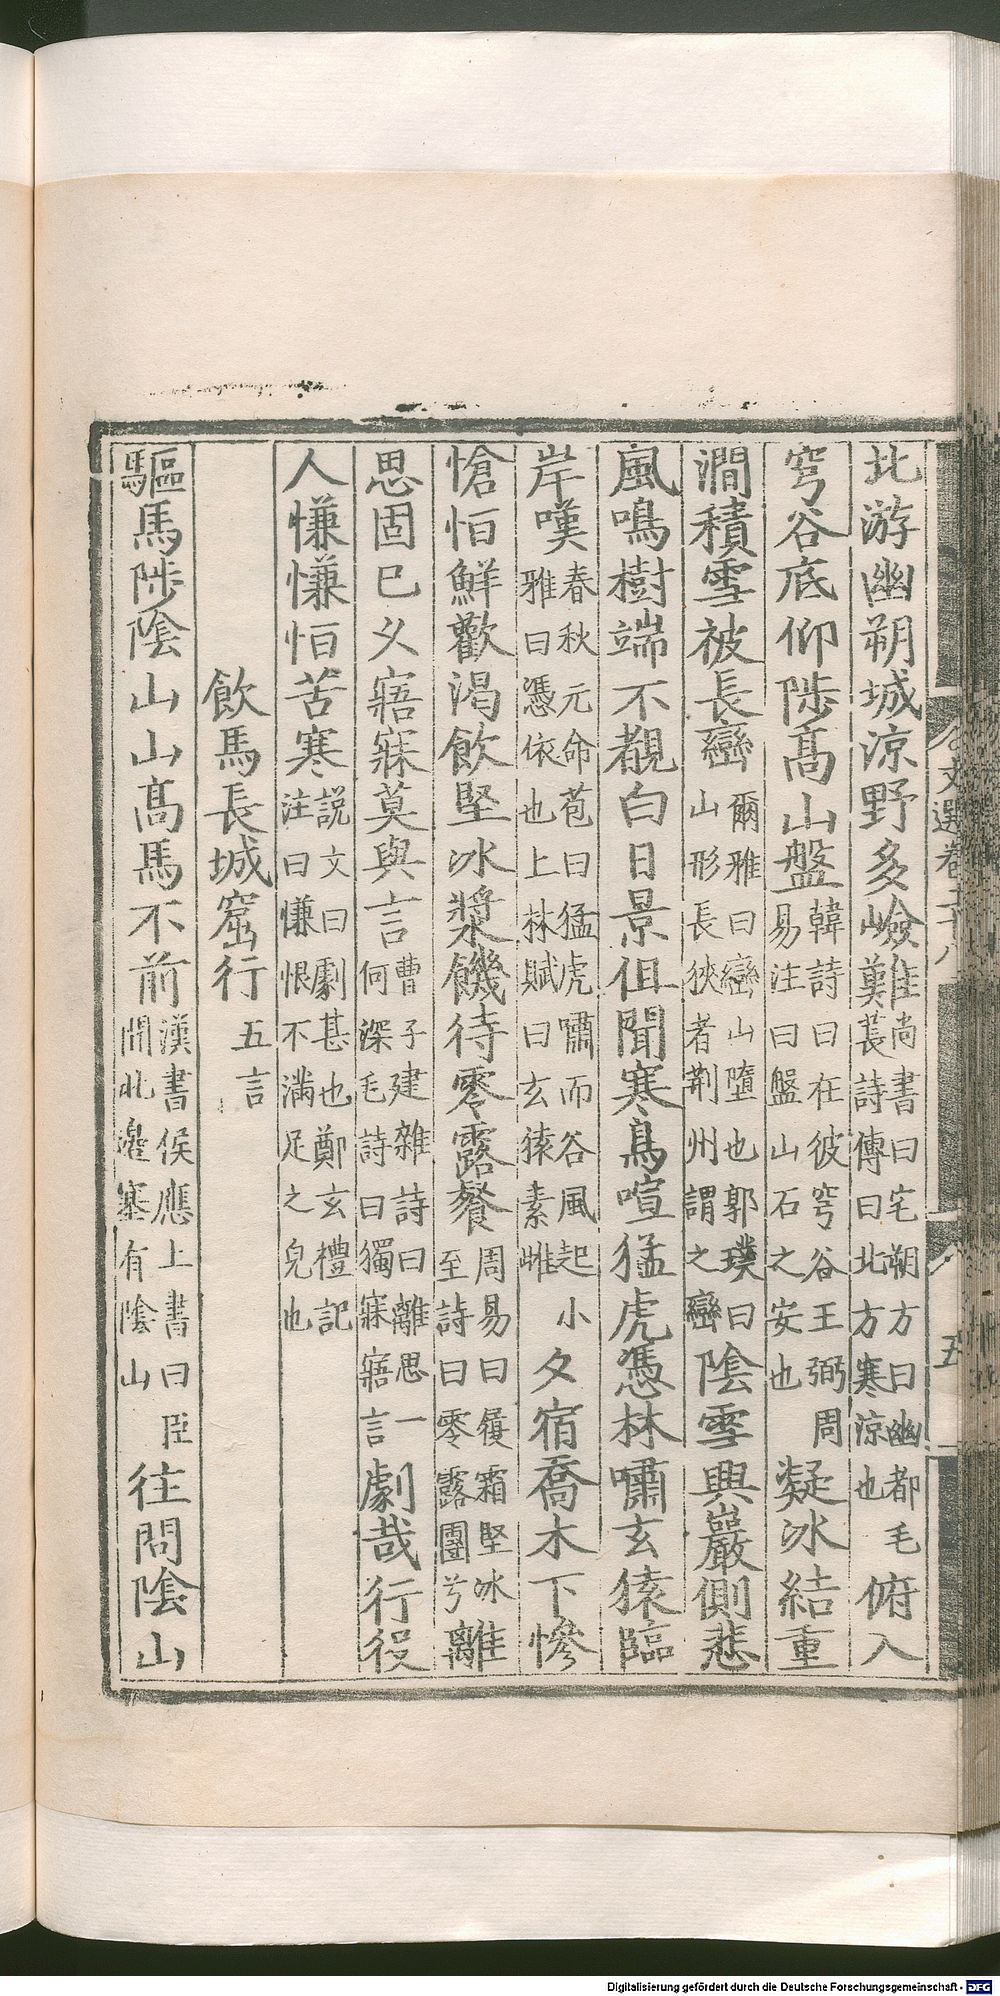 北游幽朔城涼野多嶮難尚書曰宅朔方曰幽都毛萇詩傳曰北方寒涼也俯入
穹谷底仰陟髙山盤韓詩曰在彼穹谷王弼周易注曰盤山石之安也凝冰結重
澗積雪被長巒爾雅曰巒山墮也郭璞曰山形長狹者荆州謂之巒陰雪興巖側悲
風鳴樹端不覩白日景但聞寒鳥喧猛虎憑林嘯玄猿臨
岸嘆春秋元命苞曰猛虎嘯而谷風起小雅曰憑依也上林賦曰玄猿素雌夕宿喬木下慘
愴恒鮮歡渴飲堅冰漿饑待零露餐周易曰履霜堅冰至詩曰零露團兮離
思固已乆寤寐莫與言曹子建雜詩曰離思一何深毛詩曰獨寐寤言劇哉行役
人慊慊恒苦寒説文曰劇甚也鄭玄禮記注曰慊恨不滿足之皃也
飲馬長城窟行五言
驅馬陟陰山山髙馬不前漢書侯應上書曰臣聞北邊塞有陰山往問陰山
文選卷二十八
五
Digitalisierung gefördert durch die Deutsche Forschungsgemeinschaft - DFG